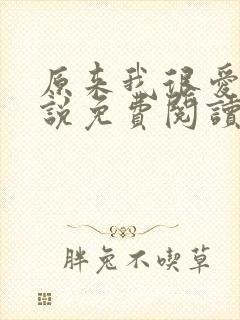 原来我很爱
說免費閱讀
胖兔不喫草